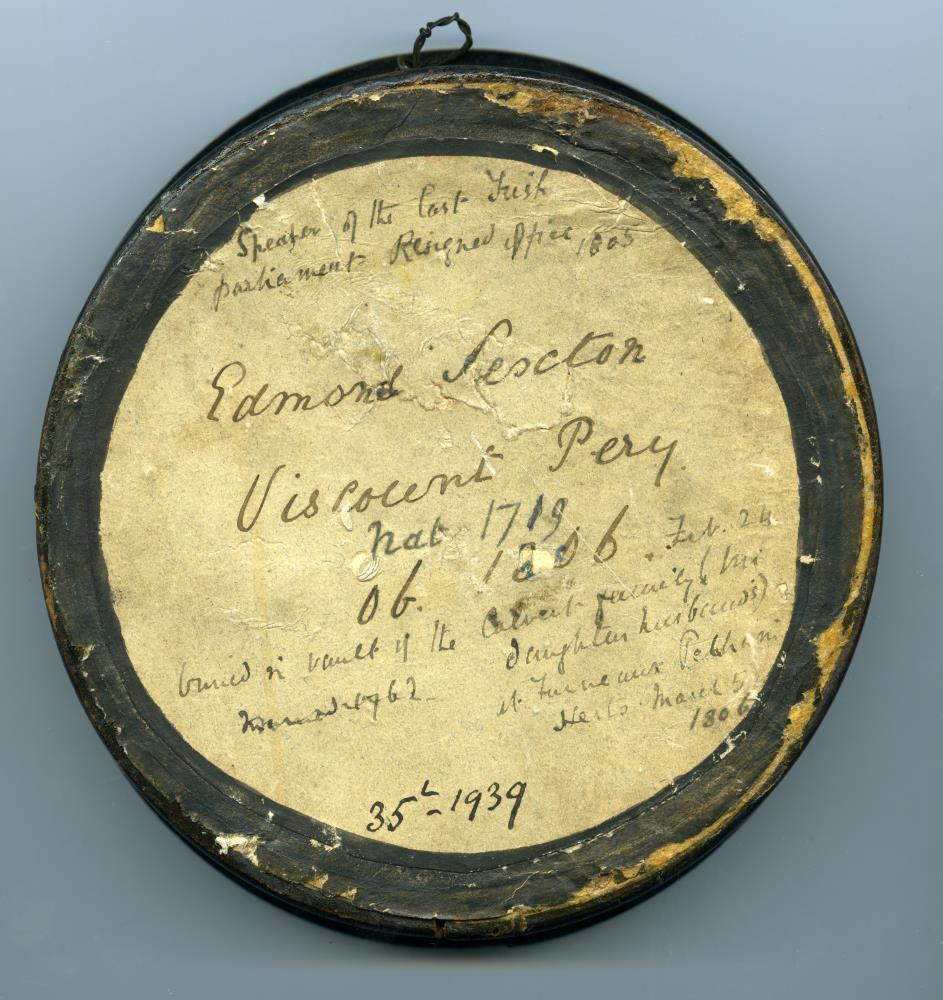 Speaker of the last Irish
parliament Resigned office 1805
Edmond Sexcton
Viscount Pery
Nat 1719
Ob. 1806. Feb. 24
buried in vault of the Calvert family (his
daughters husbands)
1762 at Furneaux Pelham
Herts March 5
1806
35L-1939